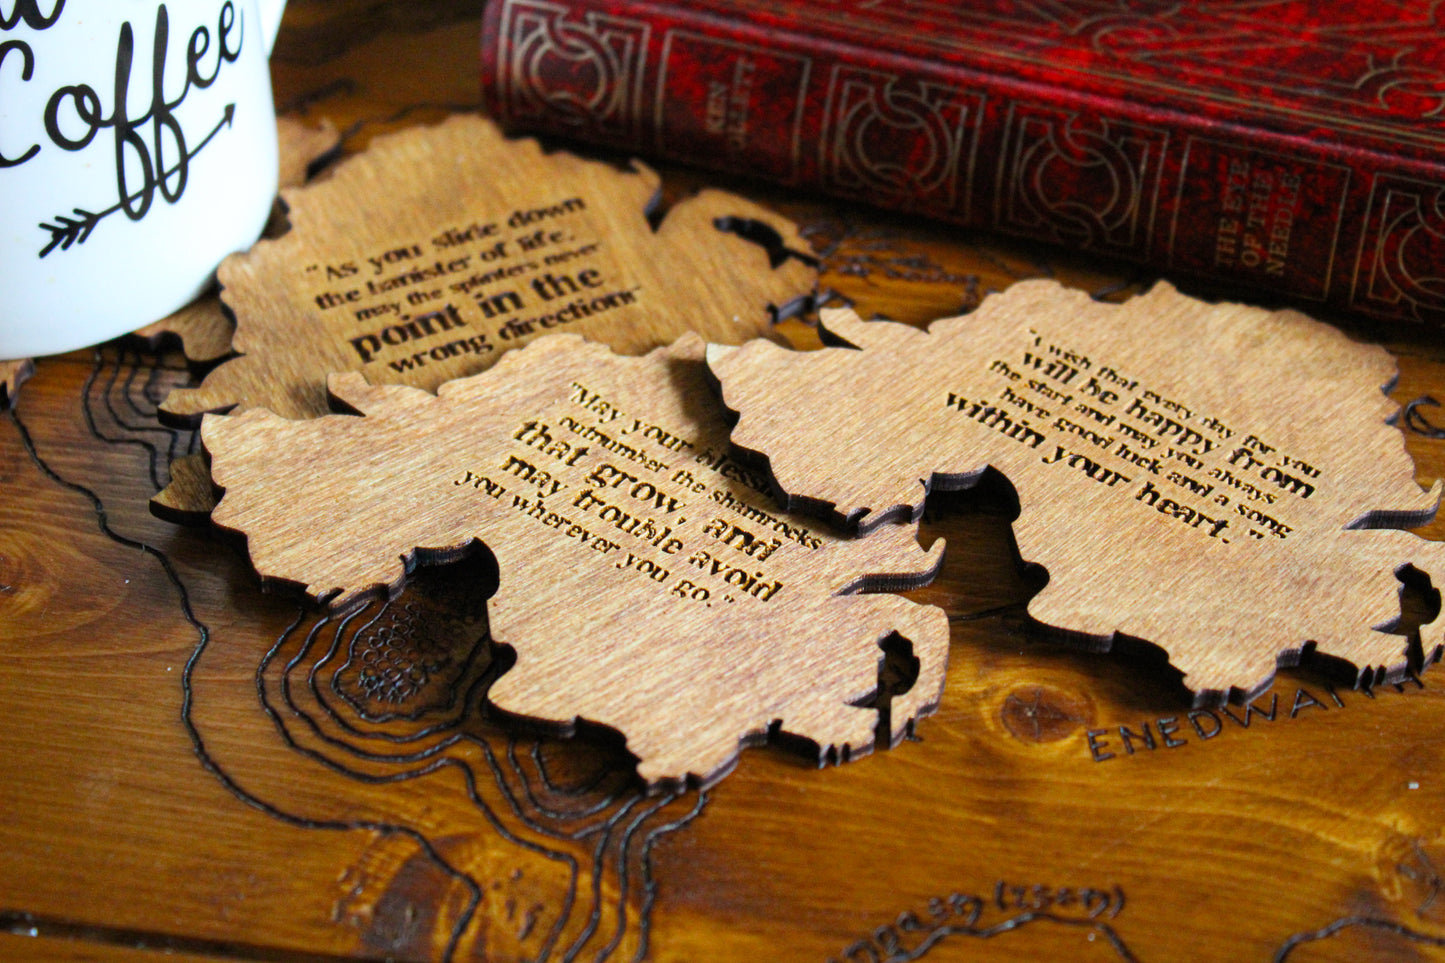 Coffee
KEN
THE EYE
OF THE
NEEDLE
"As you slide down
the banister of life,
may the splinters never
point in the
wrong direction!"
"May your
outnumber the shamrocks
that grow, and
may trouble avoid
you wherever you go."
"I wish that every day for you
will be happy from
the start and may you always
have good luck and a song
within your heart."